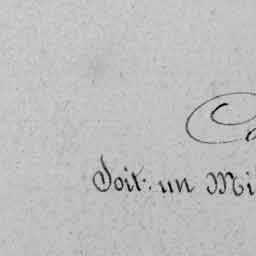 Soit un Mi